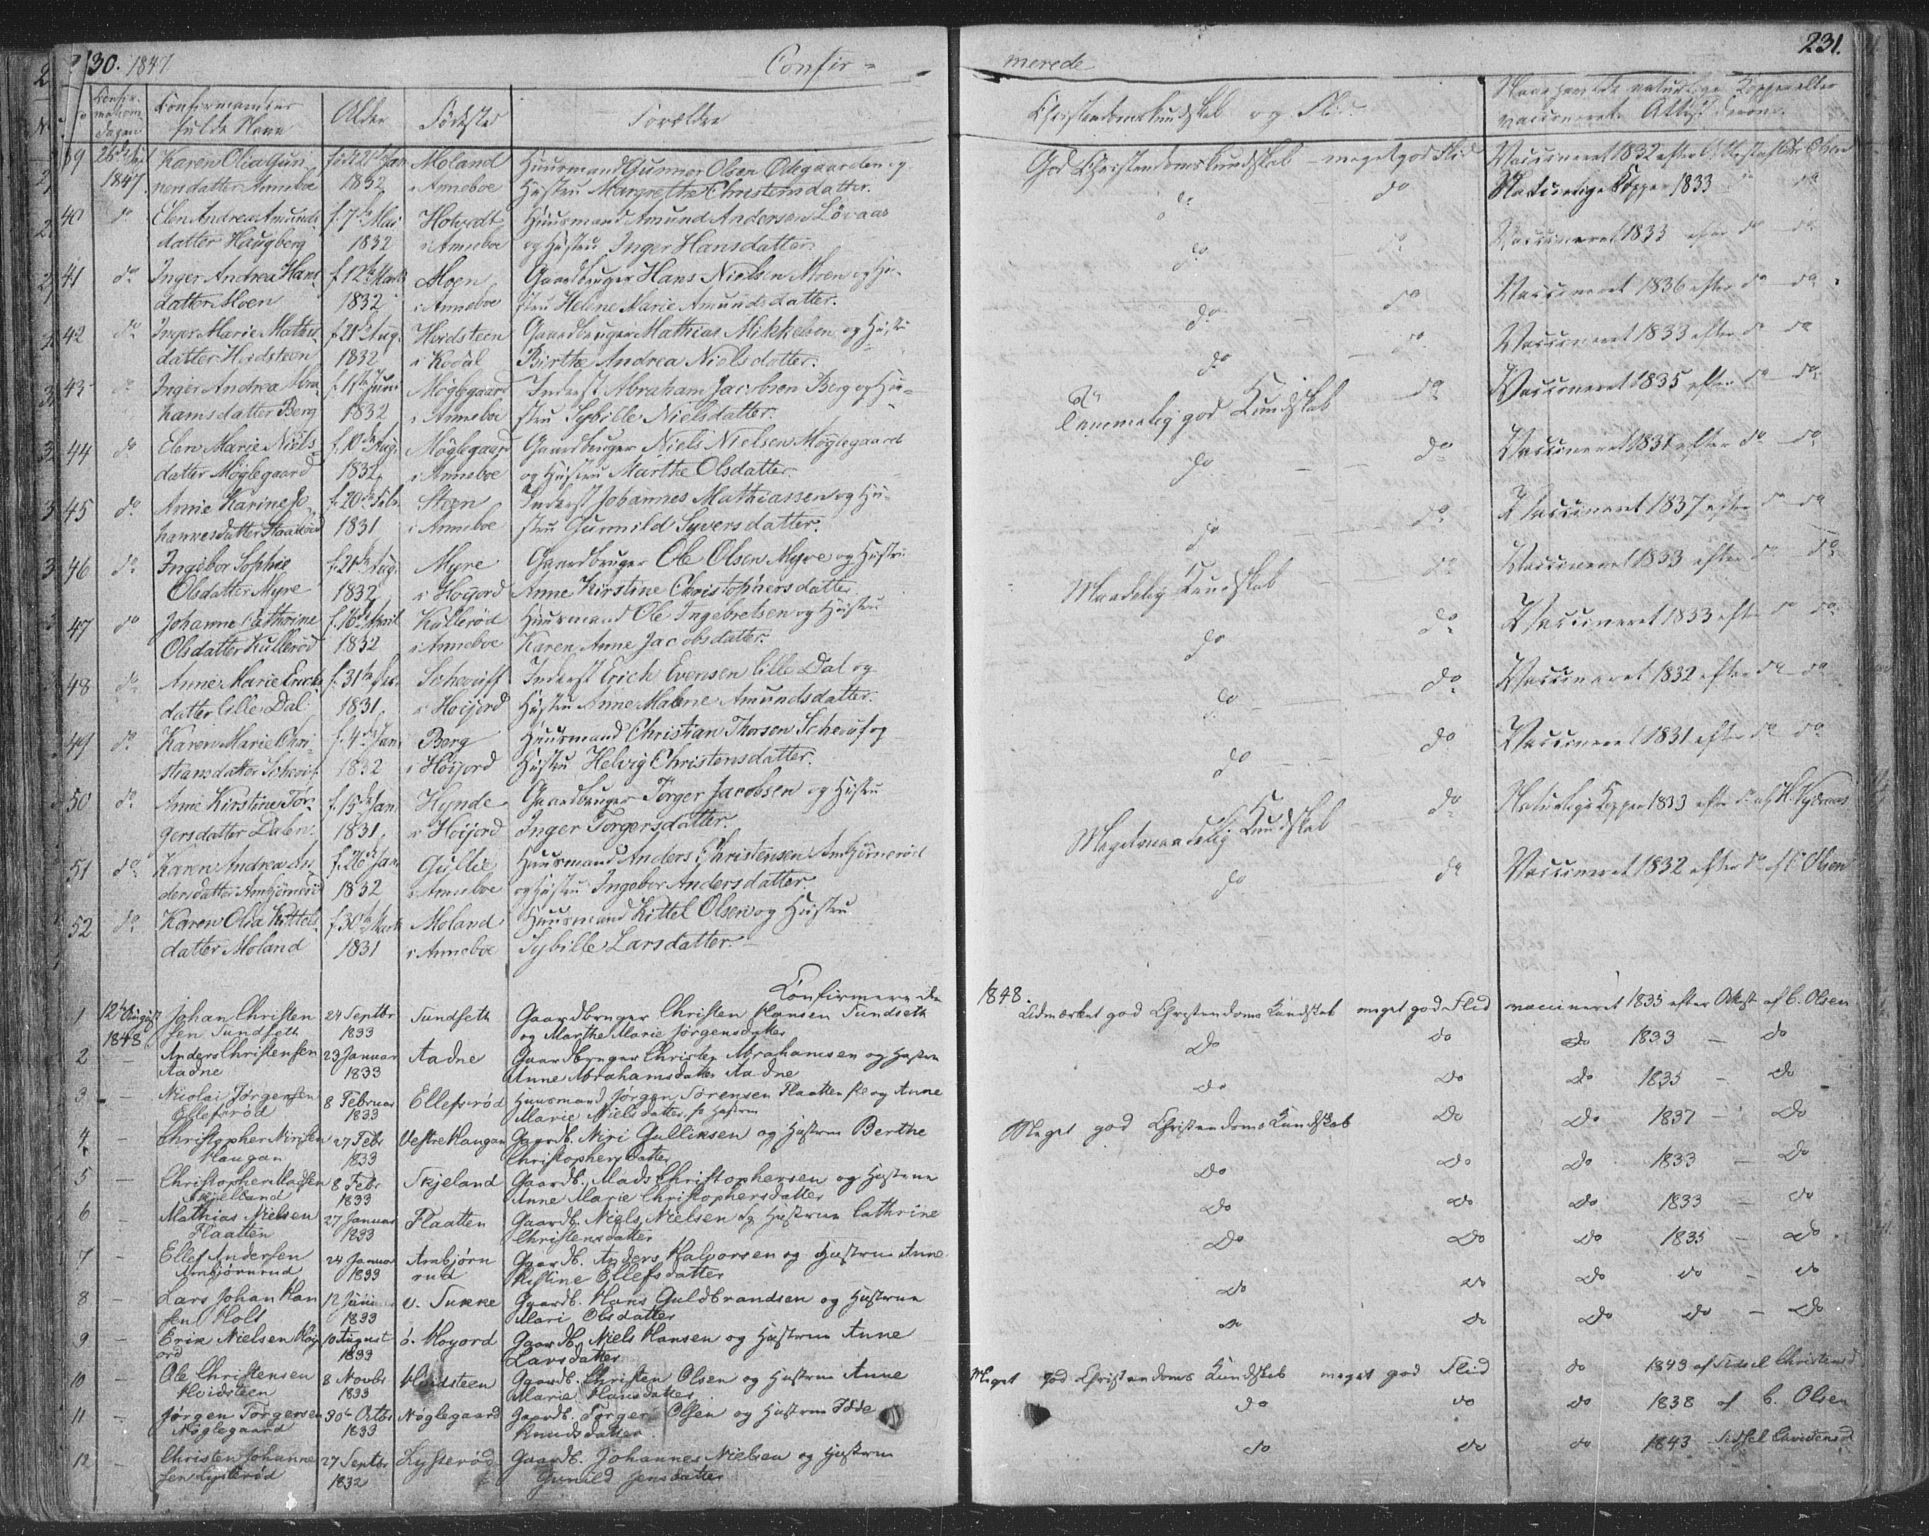 230. 1847
Confir-
Confirmationsdagen
Confirmandens fulde Navn
Alder
Fødested
Forældre
39 1847. Karen Olia Gunnersdatter Anneboe 1832 Moland i Anneboe Huusmand Gunner Olsen Odegaarden og
Hustru Margrethe Christensdatter.
40 do Elen Andrea Amundsdatter Haugberg f. 7de Mai 1832 i Anneboe Huusmand Amund Andersen Løvaas
og Hustru Inger Hansdatter.
41 do Inger Andrea Hansdatter Moen f. 12te Marts 1832 Moen i Anneboe Gaardbruger Hans Nielsen Moen og Hustru
Helene Marie Amundsdatter.
42 do Inger Marie Mathisdatter Hvidsteen f. 21de Aug. 1832 Hvidsteen i Kodal Gaardbruger Mathias Mikkelsen og Hustru
Birthe Andrea Nielsdatter.
43 do Inger Andrea Abrahamsdatter Berg 1832 Møglegaard i Anneboe Inderst Abraham Jacobsen Berg og Hustru
Sybille Nielsdatter.
44 do Elen Marie Nielsdatter Møglegaard f. 10de Aug. 1832 Møglegaard i Anneboe Gaardbruger Niels Nielsen Møglegaard
og Hustru Marthe Olsdatter.
45 do Anne Karine Johannesdatter f. 20de Febr. 1831 i Anneboe Inderst Johannes Mathiassen og Hustru
Gunnild Syversdatter.
46 do Ingebor Sophie Olsdatter Myre f. 21de Aug. 1832 Myre i Hoijord Gaardbruger Ole Olsen Myre og Hustru
Anne Kirstine Christophersdatter
47 do Johanne Cathrine Olsdatter Kullerød f. 16de April 1832 Kullerød i Anneboe Huusmand Ole Ingebretsen og Hustru
Karen Anne Jacobsdatter.
48 do Anne Marie Erichsdatter lille Dal 1831. i Hoijord Inderst Erich Evensen lille Dal og
Hustru Anne Malene Amundsdatter.
49 do Karen Marie Christiansdatter f. 4de Jan. 1832 Berg i Hoijord Huusmand Christian Thorsen og
Hustru Helvig Christensdatter.
50 do Anne Kirstine Torgersdatter Dalen f. 15de Jan. 1831. Hynde i Hoijord Gaardbruger Torger Jacobsen og Hustru
Inger Torgersdatter.
51 do Karen Andrea Andersdatter f. 26de Jan. 1832 Gullie i Anneboe Huusmand Anders Christensen
og Hustru Ingebor Andersdatter.
52 do Karen Olia Kittelsdatter Moland f. 30te Marts 1831 Moland i Anneboe Huusmand Kittel Olsen og Hustru
Sybille Larsdatter.
Confirmerede
1 12te August 1848 Johan Christensen Tundseth 24 Septbr 1833 Tundseth Gaardbruger Christen Hansen Tundseth
og Marthe Marie Jørgensdatter
2 – Anders Christensen Aadne 23 Januar 1833 Aadne Gaardbruger Christen Abrahamsen og Hustrue
Anne Abrahamsdatter Aadne
3 – Nicolai Jørgensen Ellefsrød 8 Februar 1833 Ellefsrød Huusmand Jørgen Sørensen Flaatten og Anne
Marie Nielsdatter Hustrue
4 – Christopher Nirisen Haugan 27 Febr 1833 Vestre Haugan Gaardb. Niri Gulliksen og Hustrue Berthe
Christophersdatter
5 – Christopher Madsen Skjelland 8 Febr 1833 Skjeland Gaardb. Mads Christophersen og Hustrue
Anne Marie Christophersdatter
6 – Mathias Nielsen Flaatten 27 Januar 1833 Flaatten Gaardb. Niels Nielsen og Hustrue Cathrine
Christensdatter
7 – Ellef Andersen Arnbjørnrud 24 Januar 1833 Arnbjørnrud Gaardb. Anders Halvorsen og Hustrue Anne
Kirstine Ellefsdatter
8 – Lars Johan Hansen Holt 12 Juni 1833 v. Tukke Gaardb. Hans Guldbrandsen og Hustrue
Mari Olsdatter
9 – Erik Nielsen Høyord 10 August 1833 ö. Høyord Gaardb. Niels Hansen og Hustrue Anne
Larsdatter
10 – Ole Christensen Hvidsteen 8 Novbr 1833 Hvidsteen Gaardb. Christen Olsen og Hustrue Anne
Marie Hansdatter
11 – Jørgen Torgersen Møglegaard 30te Octbr 1833 Møglegaard Gaardb. Torger Olsen og Hustrue
Knudsdatter
12 – Christen Johannesen Lysterød 27 Septbr 1832 Lysterød Gaardb. Johannes Nielsen og Hustrue
Gunild Jensdatter
merede
231.
Christendomskundskab og Flid
naturlige Kopper eller
vaccineret. Attest derom.
God Christendomskundskab – meget god Flid Vaccineret 1832 efter Attest af Chr. Olsen
do do Naturlige Kopper 1833 do
do do Vaccineret 1833 efter do do
do do Vaccineret 1836 efter do do
do do Vaccineret 1833 efter do do
do Vaccineret 1835 efter do do
Temmelig god Kundskab
do do Vaccineret 1831 efter do do
do do Vaccineret 1837 efter do do
Maadelig Kundskab do Vaccineret 1833 efter do do
do do Vaccineret 1833 efter do do
do do Vaccineret 1832 efter do do
do do Vaccineret 1831 efter do do
Meget maadelig Kundskab do Naturlige Kopper 1833 efter do af
do do Vaccineret 1832 efter do af C. Olsen
1848.
Udmærket god Christendoms Kundskab meget god Flid vaccineret 1835 efter Attest af C. Olsen
Do Do Do 1833 – Do
Do Do Do 1835 – Do
Meget god Christendoms Kundskab Do Do 1837 – Do
Do Do Do 1833 – Do
Do Do Do 1833 – Do
Do Do Do 1835 – Do
Do Do Do Do – Do
Do Do Do Do – Do
Meget god Christendoms Kundskab meget god Flid do 1843 af Sidsel Christensd
do do do 1838 af C. Olsen
do do do 1843 Sidsel